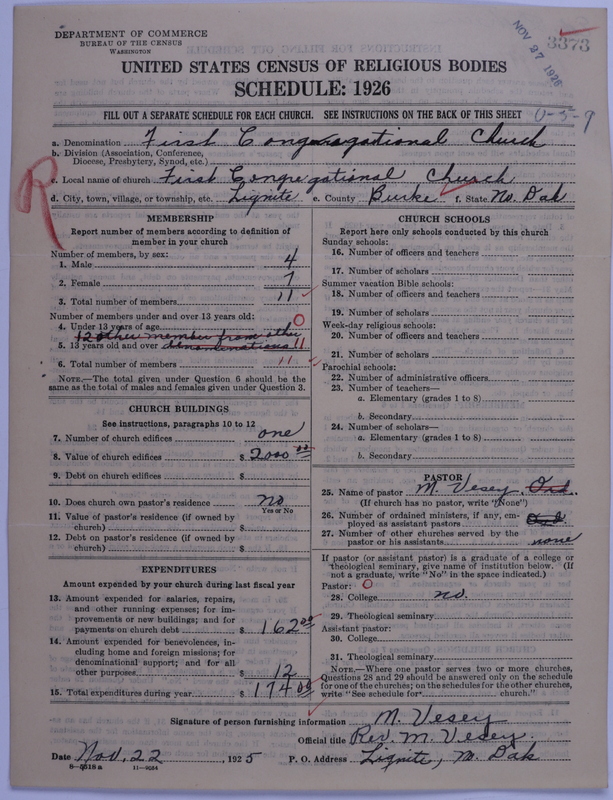 DEPARTMENT OF COMMERCE
BUREAU OF THE CENSUS
WASHINGTON
NOV 27 1926
3373
UNITED STATES CENSUS OF RELIGIOUS BODIES
SCHEDULE: 1926
FILL OUT A SEPARATE SCHEDULE FOR EACH CHURCH. SEE INSTRUCTIONS ON THE BACK OF THIS SHEET
0-5-9
R
a. Denomination First Congregational Church
b. Division (Association, Conference, Diocese, Presbytery, Synod, etc.)
c. Local name of church First Congregational Church
d. City, town, village, or township, etc. Lignite e. County Burke f. State No. Dak
MEMBERSHIP
Report number of members according to definition of
member in your church
Number of members, by sex:
1. Male 4
2. Female 7
3. Total number of members 11
Number of members under and over 13 years old:
4. Under 13 years of age 0
12 other member from other
5. 13 years old and over denominations 11
6. Total number of members 11
NOTE.—The total given under Question 6 should be
same as the total of males and females given under Question 3.
CHURCH BUILDINGS
See instructions, paragraphs 10 to 12
7. Number of church edifices one
8. Value of church edifices $ 2000 00
9. Debt on church edifices $
10. Does church own pastor's residence no
Yes or No
11. Value of pastor's residence (if owned by
church) $
12. Debt on pastor's residence (if owned by
church) $
EXPENDITURES
Amount expended by your church during last fiscal year
13. Amount expended for salaries, repairs,
and other running expenses; for im-
provements or new buildings; and for
payments on church debt $ 162 00
14. Amount expended for benevolences, in-
cluding home and foreign missions; for
denominational support; and for all
other purposes $ 12
15. Total expenditures during year $ 174 00
CHURCH SCHOOLS
Report here only schools conducted by this church
Sunday schools:
16. Number of officers and teachers
17. Number of scholars
Summer vacation Bible schools:
18. Number of officers and teachers
19. Number of scholars
Week-day religious schools:
20. Number of officers and teachers
21. Number of scholars
Parochial schools:
22. Number of administrative officers
23. Number of teachers—
a. Elementary (grades 1 to 8)
b. Secondary
24. Number of scholars—
a. Elementary (grades 1 to 8)
b. Secondary
PASTOR
25. Name of pastor M. Vesey. Ord.
(If church has no pastor, write "None")
26. Number of ordained ministers, if any, em-
ployed as assistant pastors
27. Number of other churches served by the
pastor or his assistants none
If pastor (or assistant pastor) is a graduate of a college or
theological seminary, give name of institution below. (If
not a graduate, write "No" in the space indicated.)
Pastor: 0
28. College no.
29. Theological seminary
Assistant pastor:
30. College
31. Theological seminary
NOTE.—Where one pastor serves two or more churches,
Questions 28 and 29 should be answered only on the schedule
for one of the churches; on the schedules for the other churches,
write "See schedule for church."
Signature of person furnishing information M. Vesey
Official title Rev. M. Vesey.
Date Nov. 22, 1925 P. O. Address Lignite, No. Dak
8—5518 a 11—9084